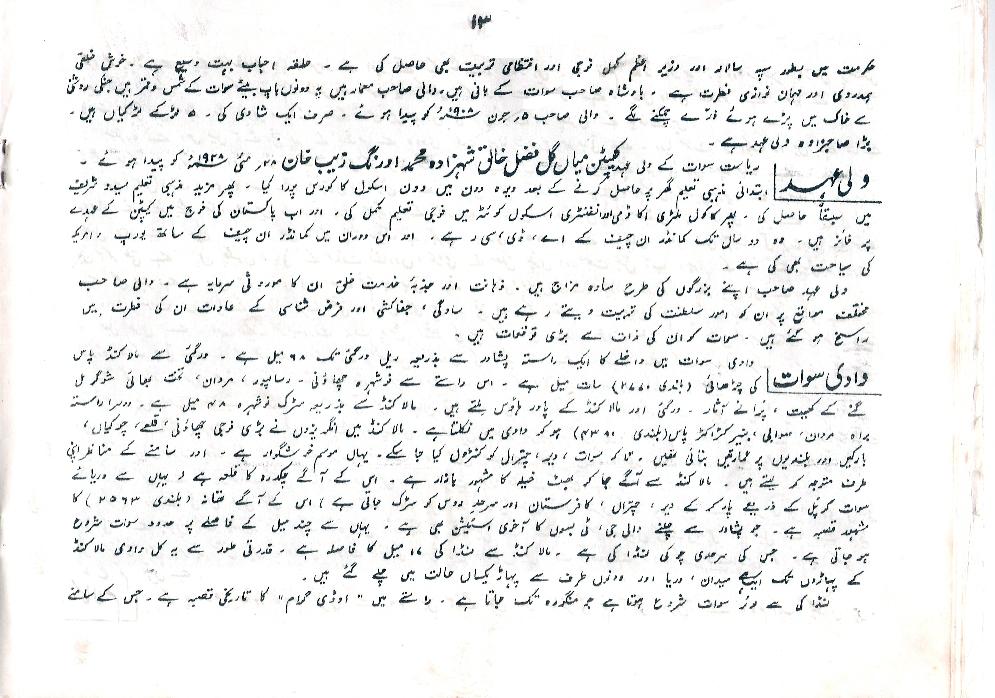 ۱۳
حکومت میں بطور سپہ سالار اور وزیر اعظم مکمل فوجی اور انتظامی تربیت بھی حاصل کی ہے ۔ حلقہ احباب بہت وسیع ہے ۔ خوش خلقی
ہمدردی اور مہمان نوازی فطرت ہے ۔ بادشاہ صاحب سوات کے بانی ہیں۔ والی صاحب معمار ہیں یہ دونوں باپ بیٹے سوات کے شمس و قمر ہیں جنکی روشنی
سے خاک میں پڑے ہوئے ذرّے چمکنے لگے ۔ والی صاحب ۵ر جون ۱۹۰۸ء کو پیدا ہوئے ۔ صرف ایک شادی کی ۔ ۵ لڑکے لڑکیاں ہیں ۔
بڑا صاحبزادہ ولی عہد ہے ۔
ولی عہد
ریاست سوات کے ولی عہد کیپٹن میاں گل فضل خالق شہزادہ محمد اورنگ زیب خان ۲۸ر مئی ۱۹۲۸ء کو پیدا ہوئے ۔
ابتدائی مذہبی تعلیم گھر پر حاصل کرنے کے بعد ڈیرہ دون میں دون اسکول کا کورس پورا کیا ۔ پھر مزید مذہبی تعلیم سیدو شریف
میں سبقاً حاصل کی ۔ پھر کاکول ملٹری اکاڈمی اور انفنٹری اسکول کوئٹہ میں فوجی تعلیم مکمل کی ۔ اور اب پاکستان کی فوج میں کیپٹن کے عہدے
پر فائز ہیں ۔ وہ دو سال تک کمانڈر ان چیف کے اے ، ڈی ، سی رہے ۔ اور اس دوران میں کمانڈر ان چیف کے ساتھ یورپ و امریکہ
کی سیاحت بھی کی ہے ۔
ولی عہد صاحب اپنے بزرگوں کی طرح سادہ مزاج ہیں ۔ ذہانت اور جذبۂ خدمت خلق ان کا موروثی سرمایہ ہے ۔ والی صاحب
مختلف مواقع پر ان کو امور سلطنت کی تربیت دیتے رہے ہیں ۔ سادگی ، جفاکشی اور فرض شناسی کے عادات ان کی فطرت میں
راسخ ہو گئے ہیں ۔ سوات کو ان کی ذات سے بڑی توقعات ہیں ۔
وادی سوات
وادی سوات میں داخلے کا ایک راستہ پشاور سے بذریعہ ریل درگئی تک ۶۸ میل ہے ۔ درگئی سے مالاکنڈ پاس
کی چڑھائی (بلندی ۲۷۷۰) سات میل ہے ۔ اس راستے سے نوشہرہ چھاؤنی ۔ رسالپور ، مردان ، تخت بھائی شوگر مل
گنّے کے کھیت ، پرانے آثار ۔ درگئی اور مالاکنڈ کے پاور ہاؤس ملتے ہیں ۔ مالاکنڈ سے بذریعہ سڑک نوشہرہ ۴۸ میل ہے ۔ دوسرا راستہ
براہ مردان ، صوابی ، بنیر کڑاکڑ پاس (بلندی ۴۳۸۰) ہو کر وادی میں نکلتا ہے ۔ مالاکنڈ میں انگریزوں نے بڑی فوجی چھاؤنی ، قلعے ، چوکیاں ،
بارکیں اور بلندیوں پر عمارتیں بنائی تھیں ۔ تاکہ سوات ، دیر ، چترال کو کنٹرول کیا جا سکے ۔ یہاں موسم خوشگوار ہے ۔ اور سامنے کے مناظر اپنی
طرف متوجہ کر لیتے ہیں ۔ مالاکنڈ سے آگے جا کر بٹ خیلہ کا مشہور بازار ہے ۔ اس کے آگے چکدرہ کا قلعہ ہے (یہاں سے دریائے
سوات کو پُل کے ذریعے پار کر کے دیر ، چترال ، کافرستان اور سرحد روس کو سڑک جاتی ہے) اس کے آگے تھانہ (بلندی ۲۵۶۳) کا
مشہور قصبہ ہے ۔ جو پشاور سے چلنے والی جی ، ٹی بسوں کا آخری اسٹیشن بھی ہے ۔ یہاں سے چند میل کے فاصلے پر حدود سوات شروع
ہو جاتی ہے ۔ جس کی سرحدی چوکی لنڈا کی ہے ۔ مالاکنڈ سے لنڈا کی ۱۷ میل کا فاصلہ ہے ۔ قدرتی طور سے یہ کل وادی مالاکنڈ
کے پہاڑوں تک ایسے میدان ، دریا اور دونوں طرف سے پہاڑ یکساں حالت میں چلے گئے ہیں ۔
لنڈا کی سے لوئر سوات شروع ہوتا ہے جو منگورہ تک جاتا ہے ۔ راستے میں "اوڈی گرام" کا تاریخی قصبہ ہے ۔ جس کے سامنے